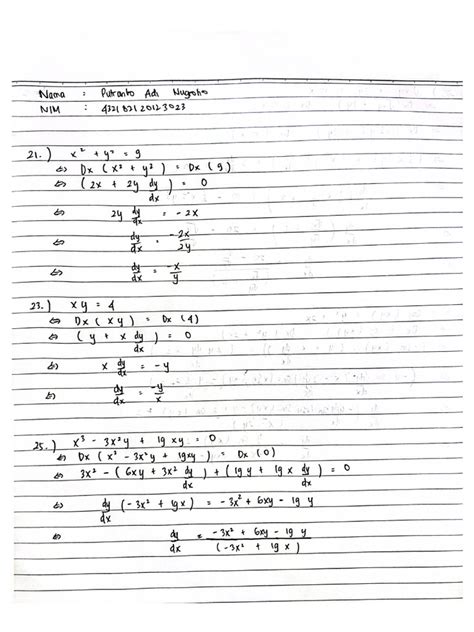 Nama : Putranto Adi Nugroho
NIM : 4321 821 2012 3023
21.) x² + y² = 9
⇔ Dx ( x² + y² ) = Dx ( 9 )
⇔ ( 2x + 2y dy/dx ) = 0
⇔ 2y dy/dx = -2x
⇔ dy/dx = -2x/2y
⇔ dy/dx = -x/y
23.) xy = 4
⇔ Dx ( xy ) = Dx (4)
⇔ ( y + x dy/dx ) = 0
⇔ x dy/dx = -y
⇔ dy/dx = -y/x
25.) x³ - 3x²y + 19 xy = 0
⇔ Dx ( x³ - 3x²y + 19xy ) = Dx (0)
⇔ 3x² - ( 6xy + 3x² dy/dx ) + ( 19 y + 19 x dy/dx ) = 0
⇔ dy/dx ( -3x² + 19x ) = -3x² + 6xy - 19 y
⇔ dy/dx = -3x² + 6xy - 19 y / ( -3x² + 19 x )